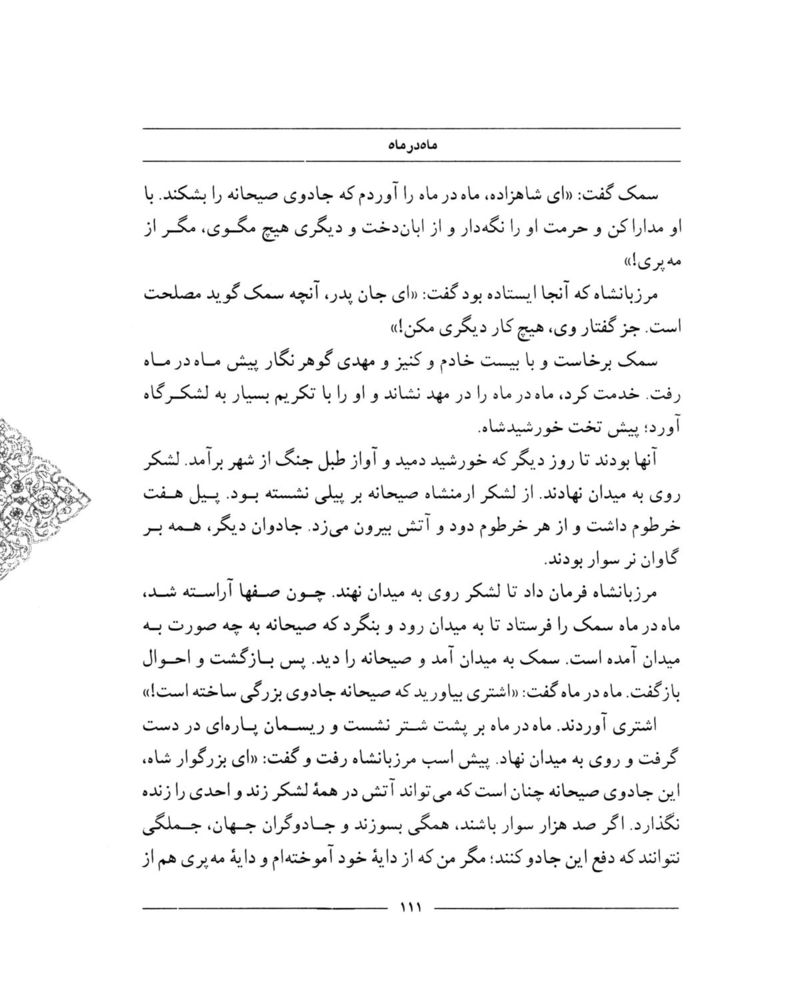 ماه‌در‌ماه
سمک گفت: «ای شاهزاده، ماه در ماه را آوردم که جادوی صیحانه را بشکند. با
او مدارا کن و حرمت او را نگه‌دار و از ابان‌دخت و دیگری هیچ مگوی، مگر از
مه‌پری!»
مرزبانشاه که آنجا ایستاده بود گفت: «ای جان پدر، آنچه سمک گوید مصلحت
است. جز گفتار وی، هیچ کار دیگری مکن!»
سمک برخاست و با بیست خادم و کنیز و مهدی گوهر نگار پیش ماه در ماه
رفت. خدمت کرد، ماه در ماه را در مهد نشاند و او را با تکریم بسیار به لشکرگاه
آورد؛ پیش تخت خورشیدشاه.
آنها بودند تا روز دیگر که خورشید دمید و آواز طبل جنگ از شهر برآمد. لشکر
روی به میدان نهادند. از لشکر ارمنشاه صیحانه بر پیلی نشسته بود. پیل هفت
خرطوم داشت و از هر خرطوم دود و آتش بیرون می‌زد. جادوان دیگر، همه بر
گاوان نر سوار بودند.
مرزبانشاه فرمان داد تا لشکر روی به میدان نهند. چون صفها آراسته شد،
ماه در ماه سمک را فرستاد تا به میدان رود و بنگرد که صیحانه به چه صورت به
میدان آمده است. سمک به میدان آمد و صیحانه را دید. پس بازگشت و احوال
بازگفت. ماه در ماه گفت: «اشتری بیاورید که صیحانه جادوی بزرگی ساخته است!»
اشتری آوردند. ماه در ماه بر پشت شتر نشست و ریسمان پاره‌ای در دست
گرفت و روی به میدان نهاد. پیش اسب مرزبانشاه رفت و گفت: «ای بزرگوار شاه،
این جادوی صیحانه چنان است که می‌تواند آتش در همهٔ لشکر زند و احدی را زنده
نگذارد. اگر صد هزار سوار باشند، همگی بسوزند و جادوگران جهان، جملگی
نتوانند که دفع این جادو کنند؛ مگر من که از دایهٔ خود آموخته‌ام و دایهٔ مه‌پری هم از
۱۱۱